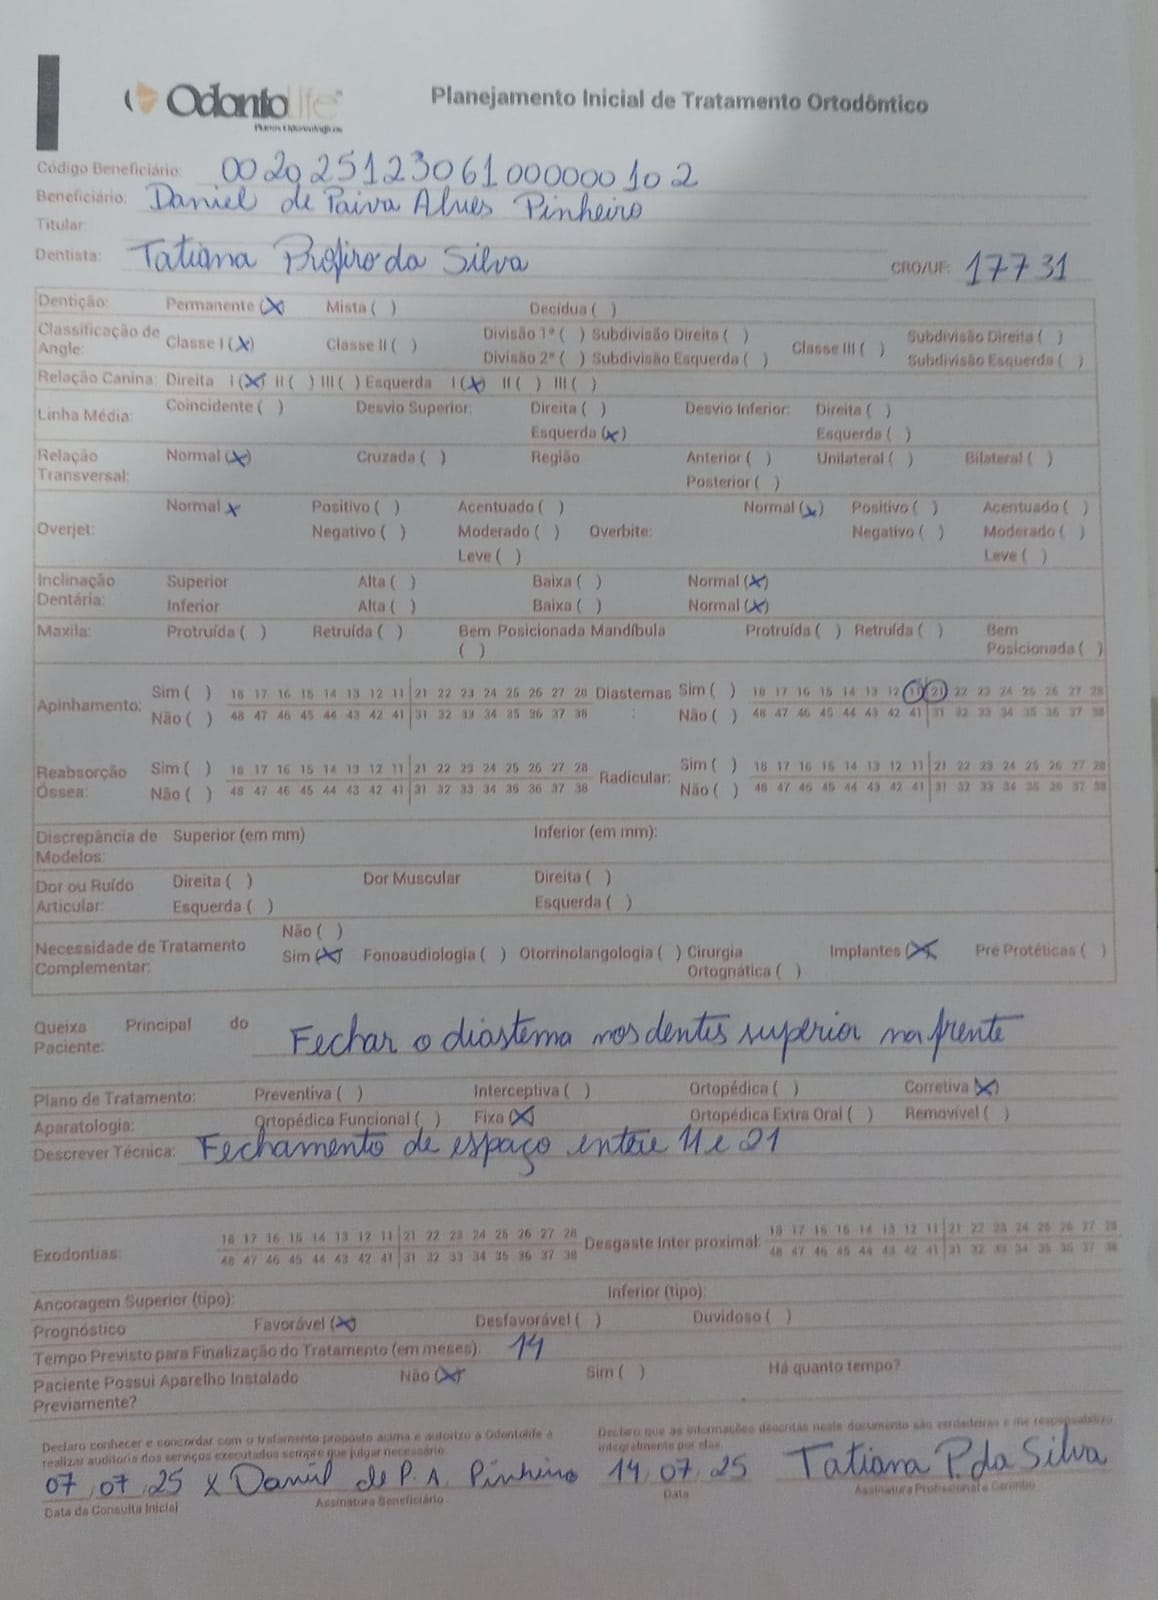 Odontolife
Planos Odontológicos
Planejamento Inicial de Tratamento Ortodôntico
Código Beneficiário: 0020251230610000000102
Beneficiário: Daniel de Paiva Alves Pinheiro
Titular:
Dentista: Tatiana Profiro da Silva CRO/UF: 17731
Dentição: Permanente (X) Mista ( ) Decídua ( )
Classificação de Angle: Classe I (X) Classe II ( ) Divisão 1ª ( ) Subdivisão Direita ( ) Classe III ( ) Subdivisão Direita ( )
Divisão 2ª ( ) Subdivisão Esquerda ( ) Subdivisão Esquerda ( )
Relação Canina: Direita I (X) II ( ) III ( ) Esquerda I (X) II ( ) III ( )
Linha Média: Coincidente ( ) Desvio Superior: Direita ( ) Desvio Inferior: Direita ( )
Esquerda (X) Esquerda ( )
Relação Transversal: Normal (X) Cruzada ( ) Região Anterior ( ) Unilateral ( ) Bilateral ( )
Posterior ( )
Overjet: Normal X Positivo ( ) Acentuado ( ) Overbite: Normal (X) Positivo ( ) Acentuado ( )
Negativo ( ) Moderado ( ) Negativo ( ) Moderado ( )
Leve ( ) Leve ( )
Inclinação Dentária: Superior Alta ( ) Baixa ( ) Normal (X)
Inferior Alta ( ) Baixa ( ) Normal (X)
Maxila: Protruída ( ) Retruída ( ) Bem Posicionada ( ) Mandíbula Protruída ( ) Retruída ( ) Bem Posicionada ( )
Apinhamento: Sim ( ) 18 17 16 15 14 13 12 11 21 22 23 24 25 26 27 28 Diastemas: Sim ( ) 18 17 16 15 14 13 12 11 21 22 23 24 25 26 27 28
Não ( ) 48 47 46 45 44 43 42 41 31 32 33 34 35 36 37 38 Não ( ) 48 47 46 45 44 43 42 41 31 32 33 34 35 36 37 38
Reabsorção Óssea: Sim ( ) 18 17 16 15 14 13 12 11 21 22 23 24 25 26 27 28 Radicular: Sim ( ) 18 17 16 15 14 13 12 11 21 22 23 24 25 26 27 28
Não ( ) 48 47 46 45 44 43 42 41 31 32 33 34 35 36 37 38 Não ( ) 48 47 46 45 44 43 42 41 31 32 33 34 35 36 37 38
Discrepância de Modelos: Superior (em mm) Inferior (em mm):
Dor ou Ruído Articular: Direita ( ) Dor Muscular Direita ( )
Esquerda ( ) Esquerda ( )
Necessidade de Tratamento Complementar: Não ( )
Sim (X) Fonoaudiologia ( ) Otorrinolangologia ( ) Cirurgia Ortognática ( ) Implantes (X) Pré Protéticas ( )
Queixa Principal do Paciente: Fechar o diastema nos dentis superior na frente
Plano de Tratamento: Preventiva ( ) Interceptiva ( ) Ortopédica ( ) Corretiva (X)
Aparatologia: Ortopédica Funcional ( ) Fixa (X) Ortopédica Extra Oral ( ) Removível ( )
Descrever Técnica: Fechamento de espaço entre 11 e 21
Exodontias: 18 17 16 15 14 13 12 11 21 22 23 24 25 26 27 28 Desgaste Inter proximal: 18 17 16 15 14 13 12 11 21 22 23 24 25 26 27 28
48 47 46 45 44 43 42 41 31 32 33 34 35 36 37 38 48 47 46 45 44 43 42 41 31 32 33 34 35 36 37 38
Ancoragem Superior (tipo): Inferior (tipo):
Prognóstico Favorável (X) Desfavorável ( ) Duvidoso ( )
Tempo Previsto para Finalização do Tratamento (em meses): 14
Paciente Possui Aparelho Instalado Previamente? Não (X) Sim ( ) Há quanto tempo?
Declaro conhecer e concordar com o tratamento proposto acima e autorizo a Odontolife a
realizar auditoria dos serviços executados sempre que julgar necessário.
Declaro que as informações descritas neste documento são verdadeiras e me responsabilizo
integralmente por elas.
07,07,25 X Daniel de P. A. Pinheiro 14,07,25 Tatiana P. da Silva
Data da Consulta Inicial Assinatura Beneficiário Data Assinatura Profissional e Carimbo